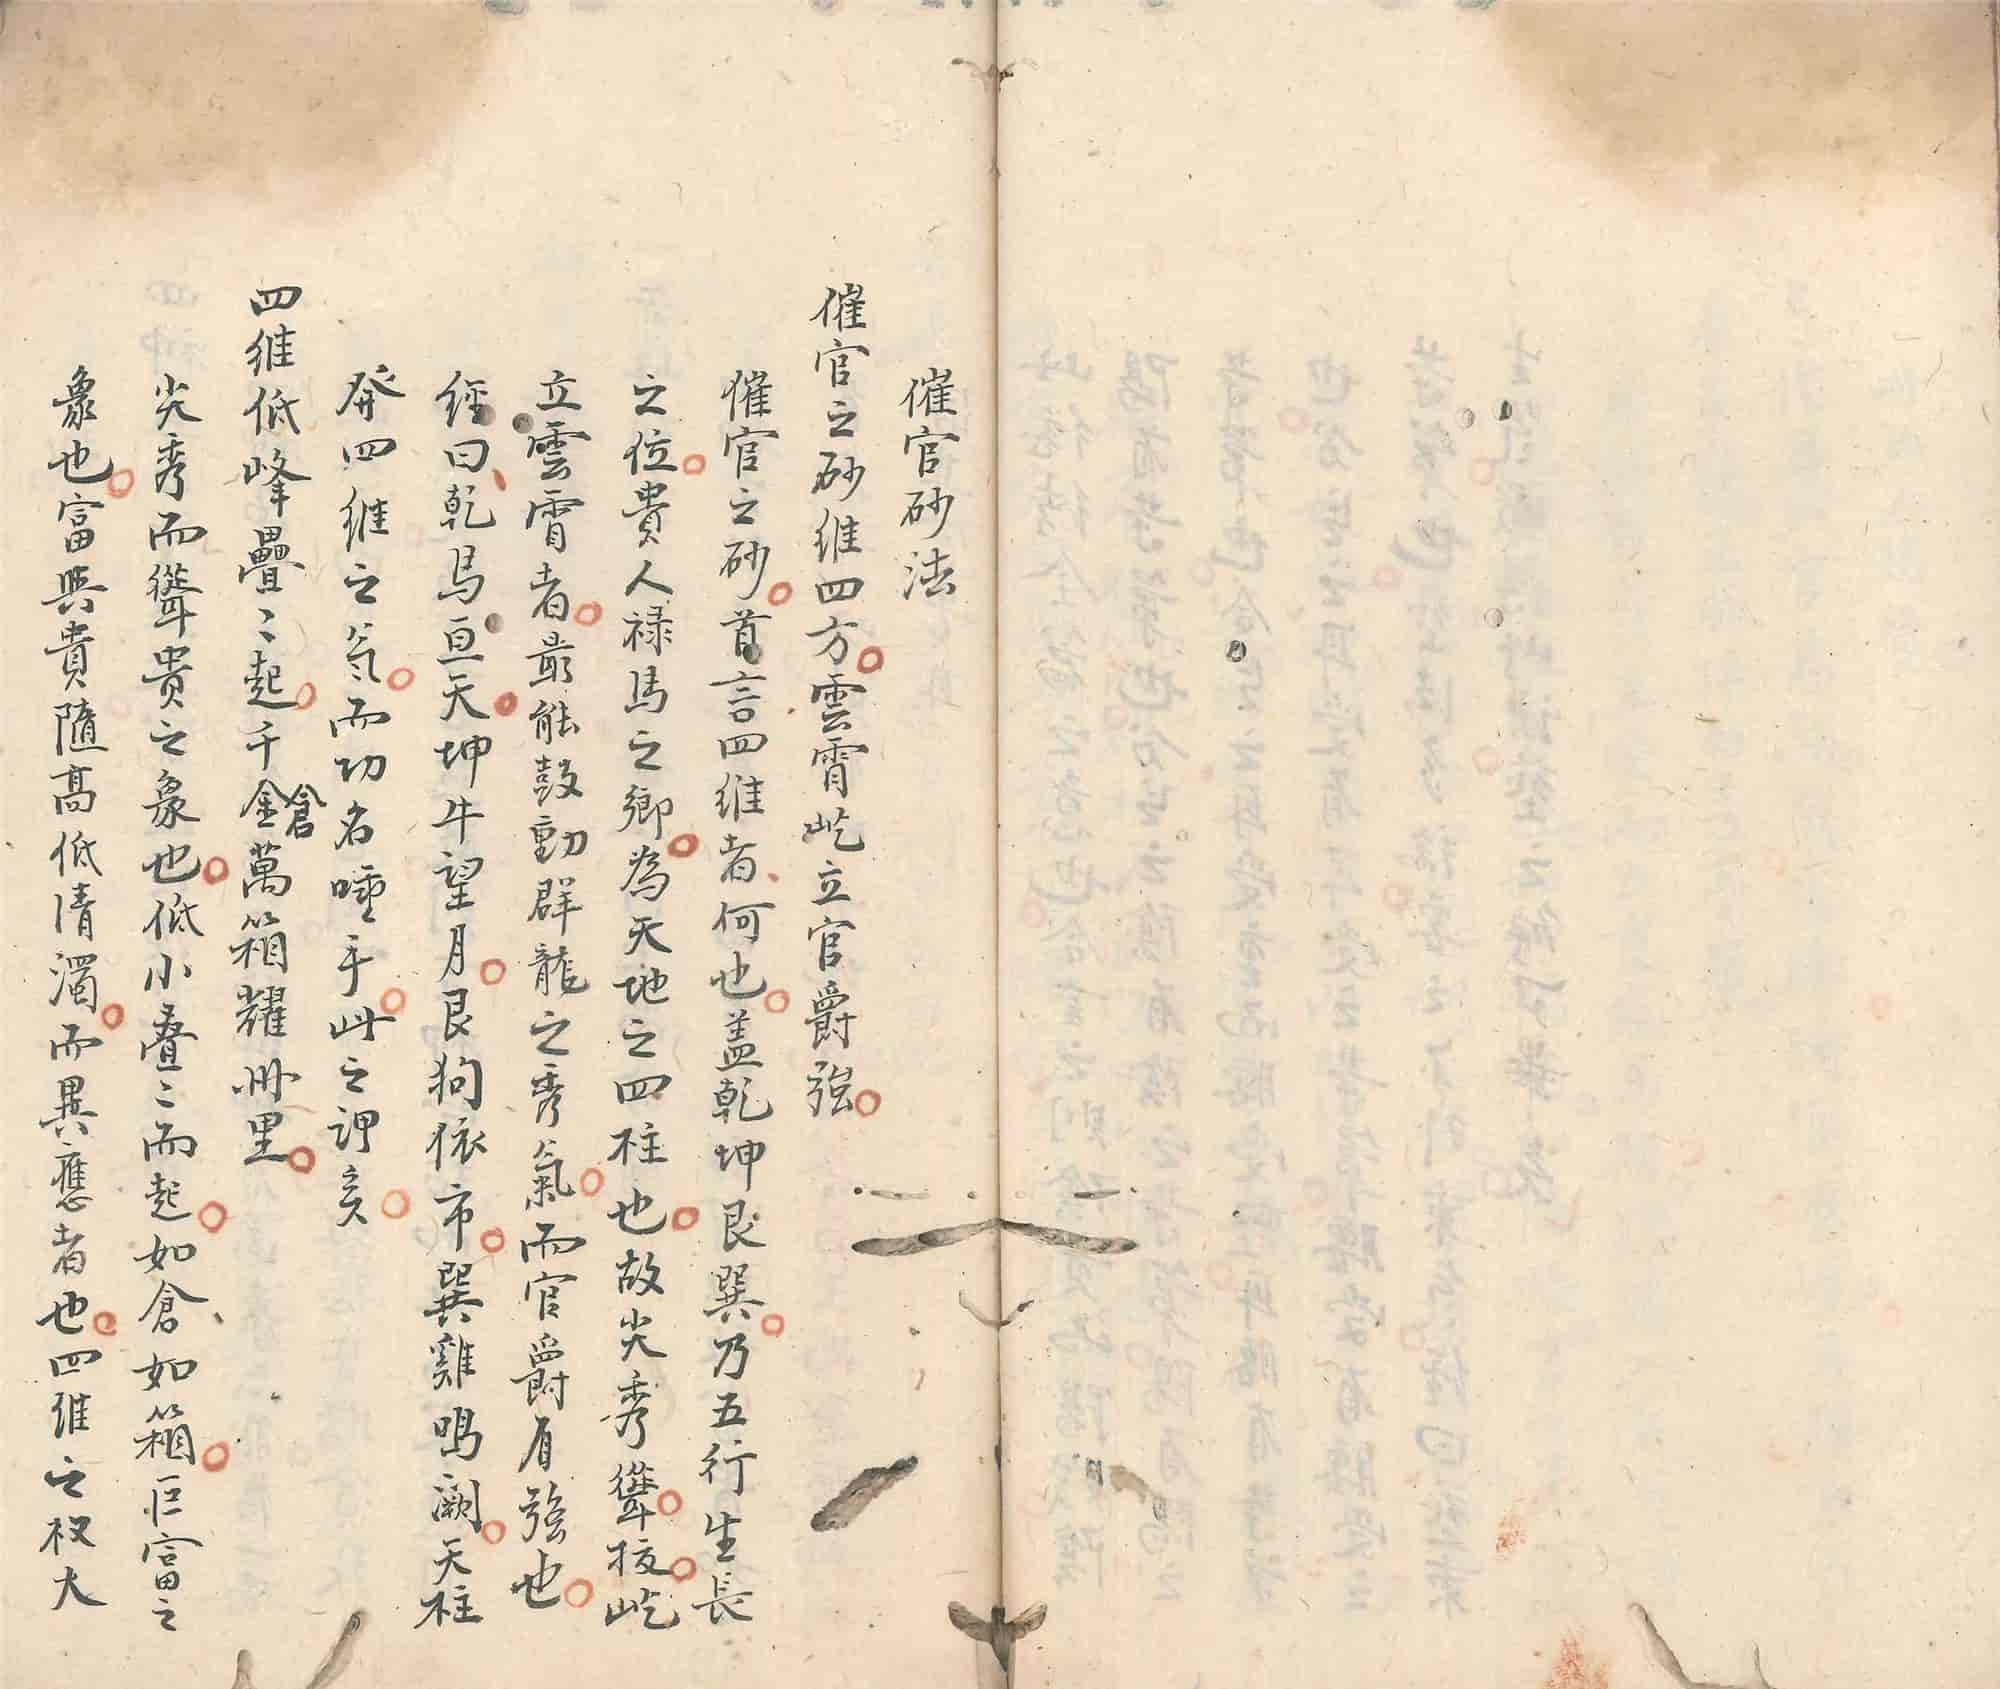 催官砂法
催官之砂維四方雲霄屹立官爵強
催官之砂首言四維者何也盖乾坤艮巽乃五行生長
之位貴人祿馬之鄉為天地之四柱也故尖秀聳拔屹
立雲霄者最能鼓動群龍之秀氣而官爵有強也
經曰乾馬亘天坤牛望月艮狗依市巽雞鳴
天柱
發四維之氣而功名唾手此之謂
四維低峰疊〻起千倉金萬箱耀州里
尖秀而聳貴之象也低小疊〻而起如倉如箱巨富之
象也富與貴隨高低清濁而異應者也四維之权大